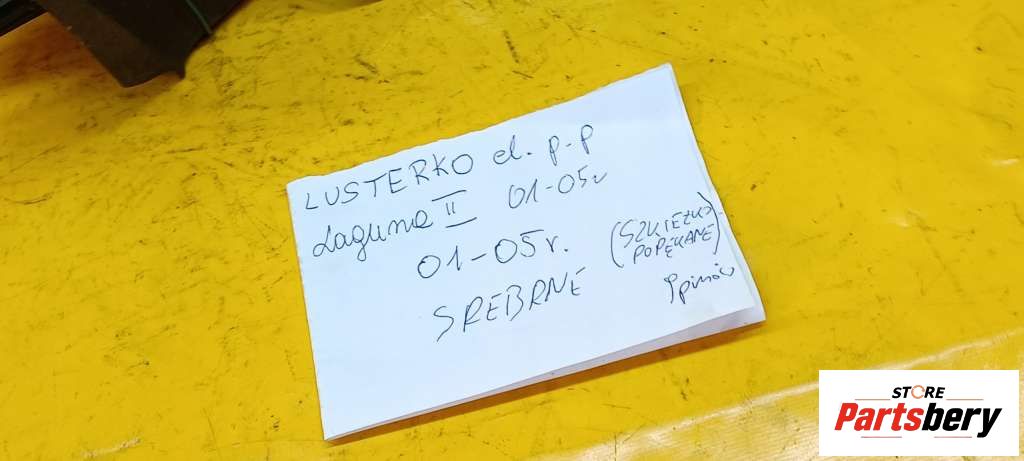 LUSTERKO el. p.p
Laguna II 01-05r
01-05r.
(SZKIEŁKO
POPĘKANE)
SREBRNE
9 pinów
STORE
Partsbery